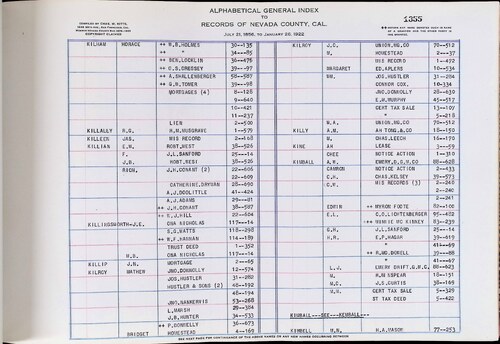 ALPHABETICAL GENERAL INDEX
TO
RECORDS OF NEVADA COUNTY, CAL.
JULY 21, 1856, TO JANUARY 22, 1922
COMPILED BY CHAS. W. WITTS,
COPYRIGHT CLAIMED
1355
KILHAM HORACE ++ W.B.HOLMES 30—135
++ " 44—85
++ BEN.LOCKLIN 36—475
++ C.S.CRESSEY 39—97
++ A.SHALLENBERGER 58—587
++ G.W.TOWER 39—98
MORTGAGES (4) 8—128
9—640
10—421
11—237
LIEN 2—500
KILLALLY R.G. H.M.MUSGRAVE 1—579
KILLEEN JAS. MIS RECORD 2—468
KILLIAN E.W. ROBT.NEST 38—526
F. J.L.SANFORD 25—14
J.B. ROBT.NEST 38—526
RICH. J.H.CONANT (2) 22—605
22—609
CATHERINE.DRYDEN 28—690
A.J.DOOLITTLE 41—424
A.J.ADAMS 29—81
++ J.H.CONANT 38—587
++ E.J.HILL 22—604
KILLINGSWORTH—J.E. CHA NICHOLAS 117—14
S.G.WATTS 118—298
++ W.F.HARMAN 114—189
TRUST DEED 1—352
M.B. CHA NICHOLAS 117—14
KILLIP J.N. MORTGAGE 2—65
KILROY MATHEW JNO.DONNOLLY 12—574
JOS.HUSTLER 31—282
HUSTLER & SONS (2) 48—192
48—194
JNO.NANKERVIS 53—268
L.MARSH 29—384
J.B.HUNTER 34—533
++ P.DONNELLY 36—673
BRIDGET HOMESTEAD 4—169
KILROY J.C. UNION.MG.CO 70—512
M. HOMESTEAD 2—37
MIS RECORD 1—472
MARGARET ED.APLERS 10—534
WM. JOS.HUSTLER 31—284
CONNOR COX. 10—334
JNO.DONNOLLY 28—630
E.M.MURPHY 45—517
CERT TAX SALE 13—107
" 5—218
W.A. UNION.MG.CO 70—512
KILLY A.M. AH TONG.& CO 18—150
M. CHAS.LEECH 14—170
KINE AH LEASE 3—59
CHEE NOTICE ACTION 1—310
KIMBALL A.M. EMERY.D.G.M.CO 88—628
CAMRON NOTICE ACTION 2—433
C.H. CHAS.KELSEY 39—573
C.M. MIS RECORDS (3) 2—240
2—240
2—241
EDWIN ++ MYRON FOOTE 82—100
E.L. C.O.LICHTENBERGER 95—482
++ MINNIE MC KINNEY 83—239
G.H. J.L.SANFORD 25—14
H.R. E.P.HAGAR 39—619
" 41—69
++ R.MC.DOWELL 39—88
++ " 41—41
L.J. EMERY DRIFT.G.M.C. 88—623
M. H.N.SPEAR 18—151
M.C. J.S.CURTIS 38—169
M.N. CERT TAX SALE 5—329
ST TAX DEED 5—422
KIMBALL---SEE---KENDALL---
KIMBELL M.N. H.A.MASON 77—253
SEE NEXT PAGE FOR CONTINUANCE OF THE ABOVE NAMES OR ANY NEW NAMES OCCURRING BETWEEN